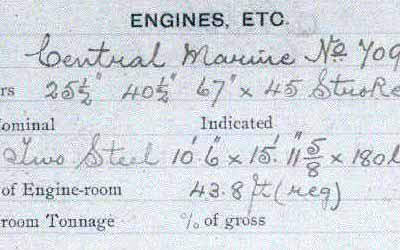 ENGINES, ETC.
Central Marine No 709
rs 25½" 40½" 67" × 45 Stroke
Nominal Indicated
Two Steel 10' 6" × 15' 11⅝" × 180 l
of Engine-room 43.8 ft (reg)
room Tonnage % of gross